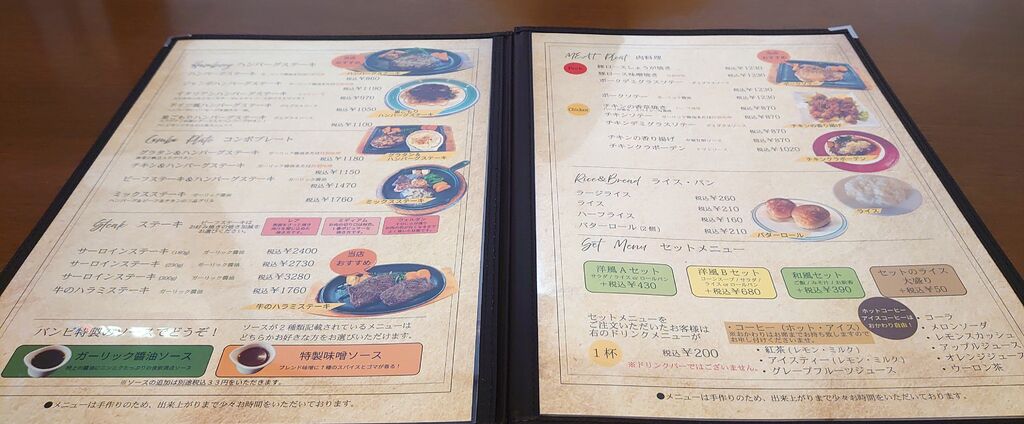 ハンバーグステーキ
当店
おすすめ
ハンバーグステーキ
税込￥860
ハンバーグステーキ
税込￥1190
税込￥970
税込￥1050
税込￥1100
ハンバーグステーキ
Combo Plate コンボプレート
グラタン&ハンバーグステーキ
税込￥1180
グラタン&
ハンバーグステーキ
チキン&ハンバーグステーキ
税込￥1150
ビーフステーキ&ハンバーグステーキ ガーリック醤油
税込￥1470
ミックスステーキ ガーリック醤油
税込￥1760
ミックスステーキ
Steak ステーキ
ビーフステーキは
お好み焼きの焼き加減を
お選びください。
レア
ミディアム
ウェルダン
サーロインステーキ (180g) ガーリック醤油 税込￥2400
サーロインステーキ (230g) ガーリック醤油 税込￥2730
サーロインステーキ (300g) ガーリック醤油 税込￥3280
牛のハラミステーキ ガーリック醤油 税込￥1760
当店
おすすめ
牛のハラミステーキ
ソースが2種類記載されているメニューは
どちらかお好きな方をお選びいただけます。
ガーリック醤油ソース
特製味噌ソース
※ソースの追加は別途税込33円をいただきます。
●メニューは手作りのため、出来上がりまで少々お時間をいただいております。
MEAT Plate 肉料理
Pork
豚ロースしょうが焼き
税込￥1230
豚ロース味噌焼き
税込￥1230
ポークデミグラスソテー
税込￥1230
ポークソテー
税込￥1230
Chicken
チキンの香草焼き
税込￥870
チキンソテー
税込￥870
チキンデミグラスソテー
税込￥870
チキンの香り揚げ
税込￥870
チキンの香り揚げ
チキンクラボーデン
税込￥1020
チキンクラボーデン
Rice&Bread ライス・パン
ラージライス
税込￥260
ライス
税込￥210
ハーフライス
税込￥160
バターロール(2個)
税込￥210
バターロール
ライス
Set Menu セットメニュー
洋風Aセット
サラダ/ライスorロールパン
+税込￥430
洋風Bセット
コーンスープ/サラダ/
ライスorロールパン
+税込￥680
和風セット
ご飯/みそ汁/お新香
+税込￥390
セットのライス
大盛り
+税込￥50
セットメニューを
ご注文いただいたお客様は
右のドリンクメニューが
1杯
税込￥200
※ドリンクバーではございません。
・コーヒー(ホット・アイス)
・紅茶(レモン・ミルク)
・アイスティー(レモン・ミルク)
・グレープフルーツジュース
ホットコーヒー
アイスコーヒーは
おかわり自由！
・コーラ
・メロンソーダ
・レモンスカッシュ
・アップルジュース
・オレンジジュース
・ウーロン茶
●メニューは手作りのため、出来上がりまで少々お時間をいただいております。